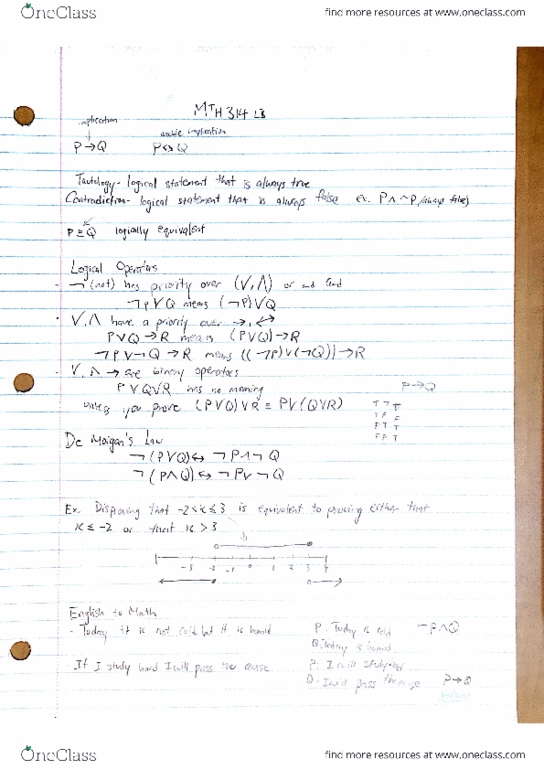 OneClass
find more resources at www.oneclass.com
MTH 314 L3
implication
double implication
P→Q
P↔Q
Tautology - logical statement that is always true
Contradiction - logical statement that is always false ex. P∧~P (always false)
P≡Q logically equivalent
Logical Operators
- ¬ (not) has priority over (V,Λ) or and and
¬PVQ means (¬P)VQ
V,Λ have a priority over →, ↔
PVQ→R means (PVQ)→R
¬PV¬Q→R means ((¬P)V(¬Q))→R
V,Λ → are binary operators
PVQVR has no meaning
unless you prove (PVQ)VR ≡ PV(QVR)
P→Q
T T T
T F F
F T T
F F T
De Morgan's Law
¬(PVQ)↔ ¬P∧¬Q
¬(P∧Q)↔ ¬PV¬Q
Ex. Disproving that -2<x≤3 is equivalent to proving either that
x≤-2 or that x>3
-3 -2 -1 0 1 2 3 4
English to Math
- Today it is not cold but it is humid
P: Today is cold
¬P∧Q
Q: Today is humid
- If I study hard I will pass the course
P: I will study
Q: I will pass the
P→Q
OneClass
find more resources at www.oneclass.com